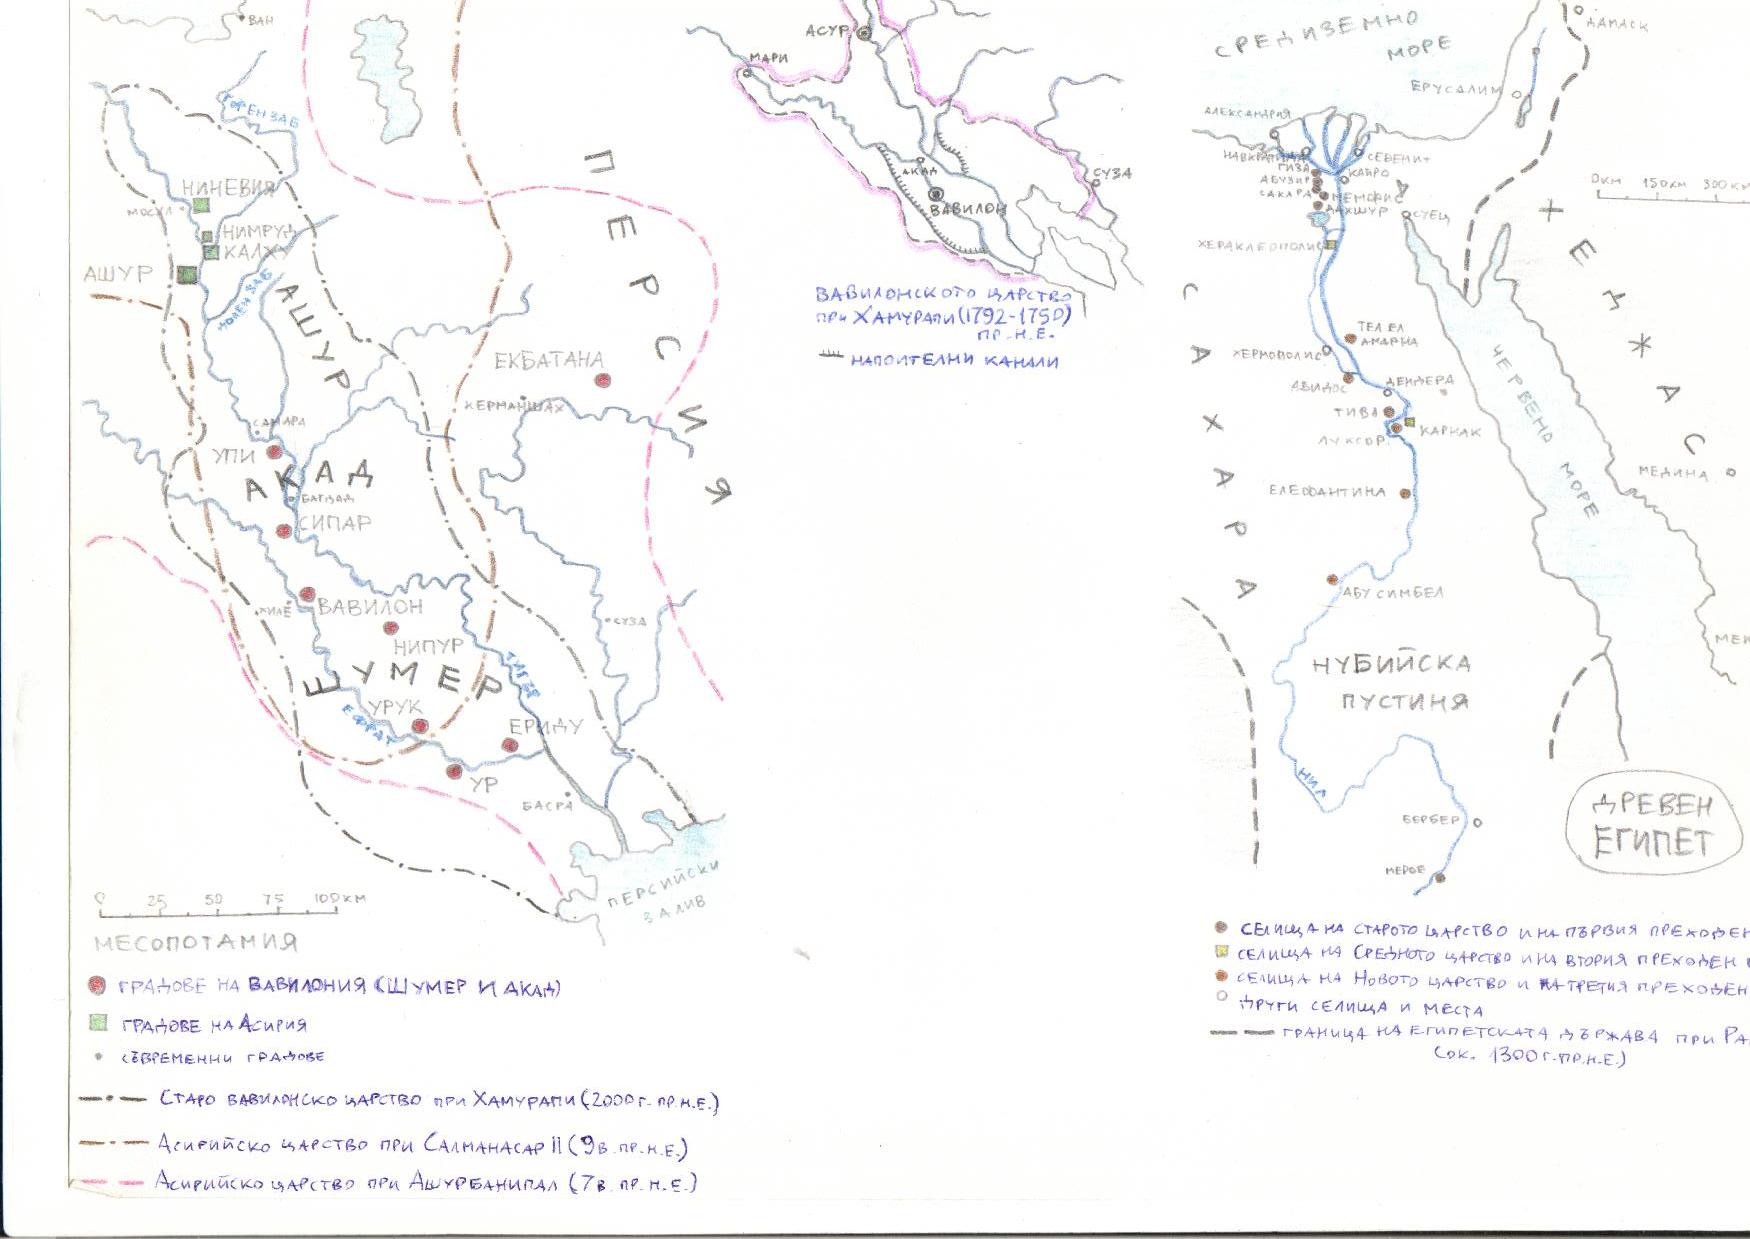 ВАН
ГОРЕН ЗАБ
НИНЕВИЯ
МОСУЛ
НИМРУД
КАЛХУ
АШУР
ДОЛЕН ЗАБ
АШУР
ПЕРСИЯ
ЕКБАТАНА
КЕРМАНШАХ
САМАРА
УПИ
АКАД
БАГДАД
СИПАР
ХИЛЕ
ВАВИЛОН
НИПУР
СУЗА
ШУМЕР
ТИГЪР
УРУК
ЕФРАТ
ЕРИДУ
УР
БАСРА
ПЕРСИЙСКИ
ЗАЛИВ
0 25 50 75 100 КМ
МЕСОПОТАМИЯ
ГРАДОВЕ НА ВАВИЛОНИЯ (ШУМЕР И АКАД)
ГРАДОВЕ НА АСИРИЯ
СЪВРЕМЕННИ ГРАДОВЕ
СТАРО ВАВИЛОНСКО ЦАРСТВО ПРИ ХАМУРАПИ (2000 Г. ПР.Н.Е.)
АСИРИЙСКО ЦАРСТВО ПРИ САЛМАНАСАР II (9 В. ПР.Н.Е.)
АСИРИЙСКО ЦАРСТВО ПРИ АШУРБАНИПАЛ (7 В. ПР.Н.Е.)
АСУР
МАРИ
АКАД
СУЗА
ВАВИЛОН
ВАВИЛОНСКОТО ЦАРСТВО
ПРИ ХАМУРАПИ (1792-1750)
ПР.Н.Е.
НАПОИТЕЛНИ КАНАЛИ
СРЕДИЗЕМНО
МОРЕ
ДАМАСК
ЕРУСАЛИМ
АЛЕКСАНДРИЯ
СЕБЕНИТ
ГИЗА
КАЙРО
АБУЗИР
САКАРА
МЕМФИС
ДАХШУР
СУЕЦ
0 КМ 150 КМ 300 КМ
ХЕРАКЛЕОПОЛИС
ТЕЛ ЕЛ
АМАРНА
ХЕРМОПОЛИС
АБИДОС
ДЕНДЕРА
ТИВА
КАРНАК
ЛУКСОР
ЕЛЕФАНТИНА
АБУ СИМБЕЛ
САХАРА
ХЕДЖАС
ЧЕРВЕНО МОРЕ
МЕДИНА
НУБИЙСКА
ПУСТИНЯ
НИЛ
БЕРБЕР
МЕРОЕ
ДРЕВЕН
ЕГИПЕТ
СЕЛИЩА НА СТАРОТО ЦАРСТВО И НА ПЪРВИЯ ПРЕХОДЕН
СЕЛИЩА НА СРЕДНОТО ЦАРСТВО И НА ВТОРИЯ ПРЕХОДЕН
СЕЛИЩА НА НОВОТО ЦАРСТВО И НА ТРЕТИЯ ПРЕХОДЕН
ДРУГИ СЕЛИЩА И МЕСТА
ГРАНИЦА НА ЕГИПЕТСКАТА ДЪРЖАВА ПРИ РА
(ОК. 1300 Г. ПР.Н.Е.)